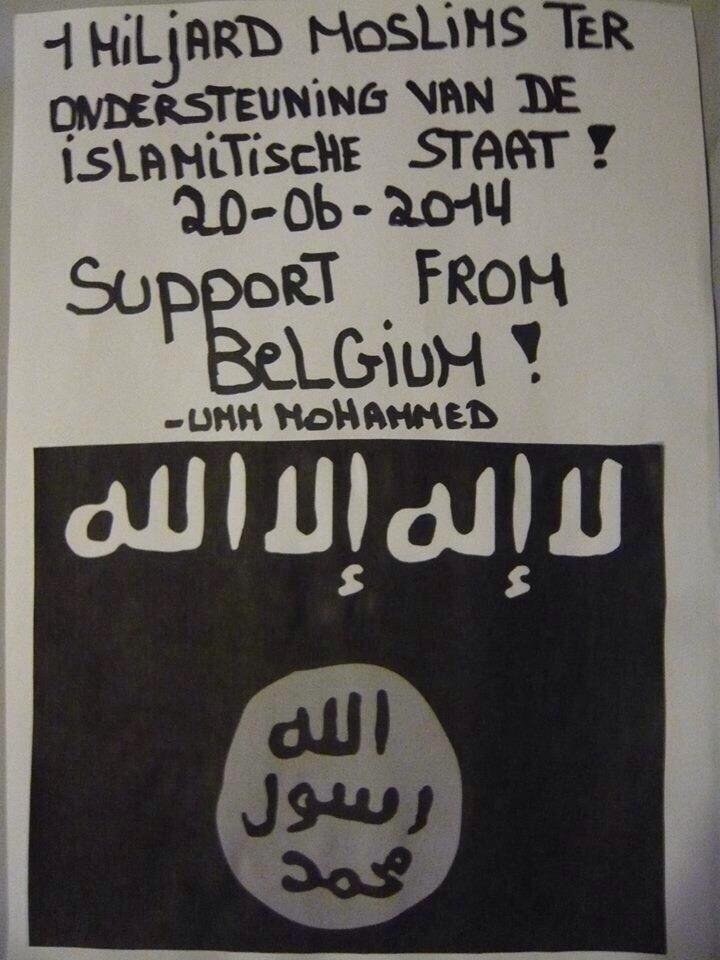 1 MILJARD MOSLIMS TER
ONDERSTEUNING VAN DE
ISLAMITISCHE STAAT!
20-06-2014
SUPPORT FROM
BELGIUM!
-UMM MOHAMMED
لا إله إلا الله
الله
رسول
محمد